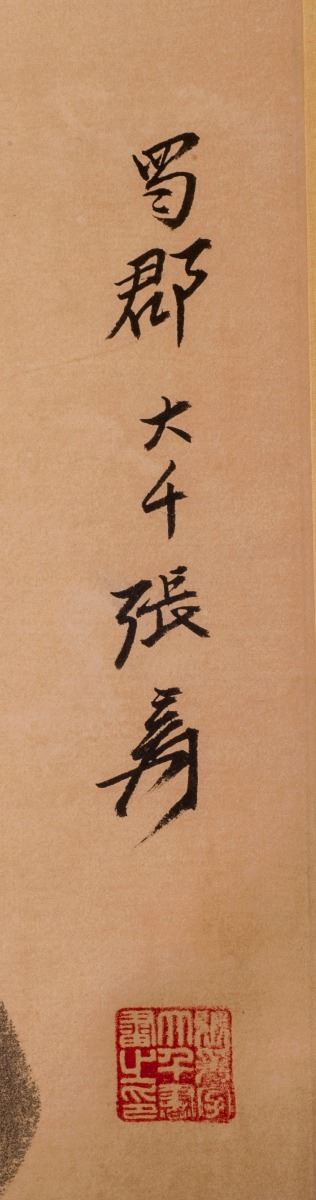 蜀郡 大千張爰